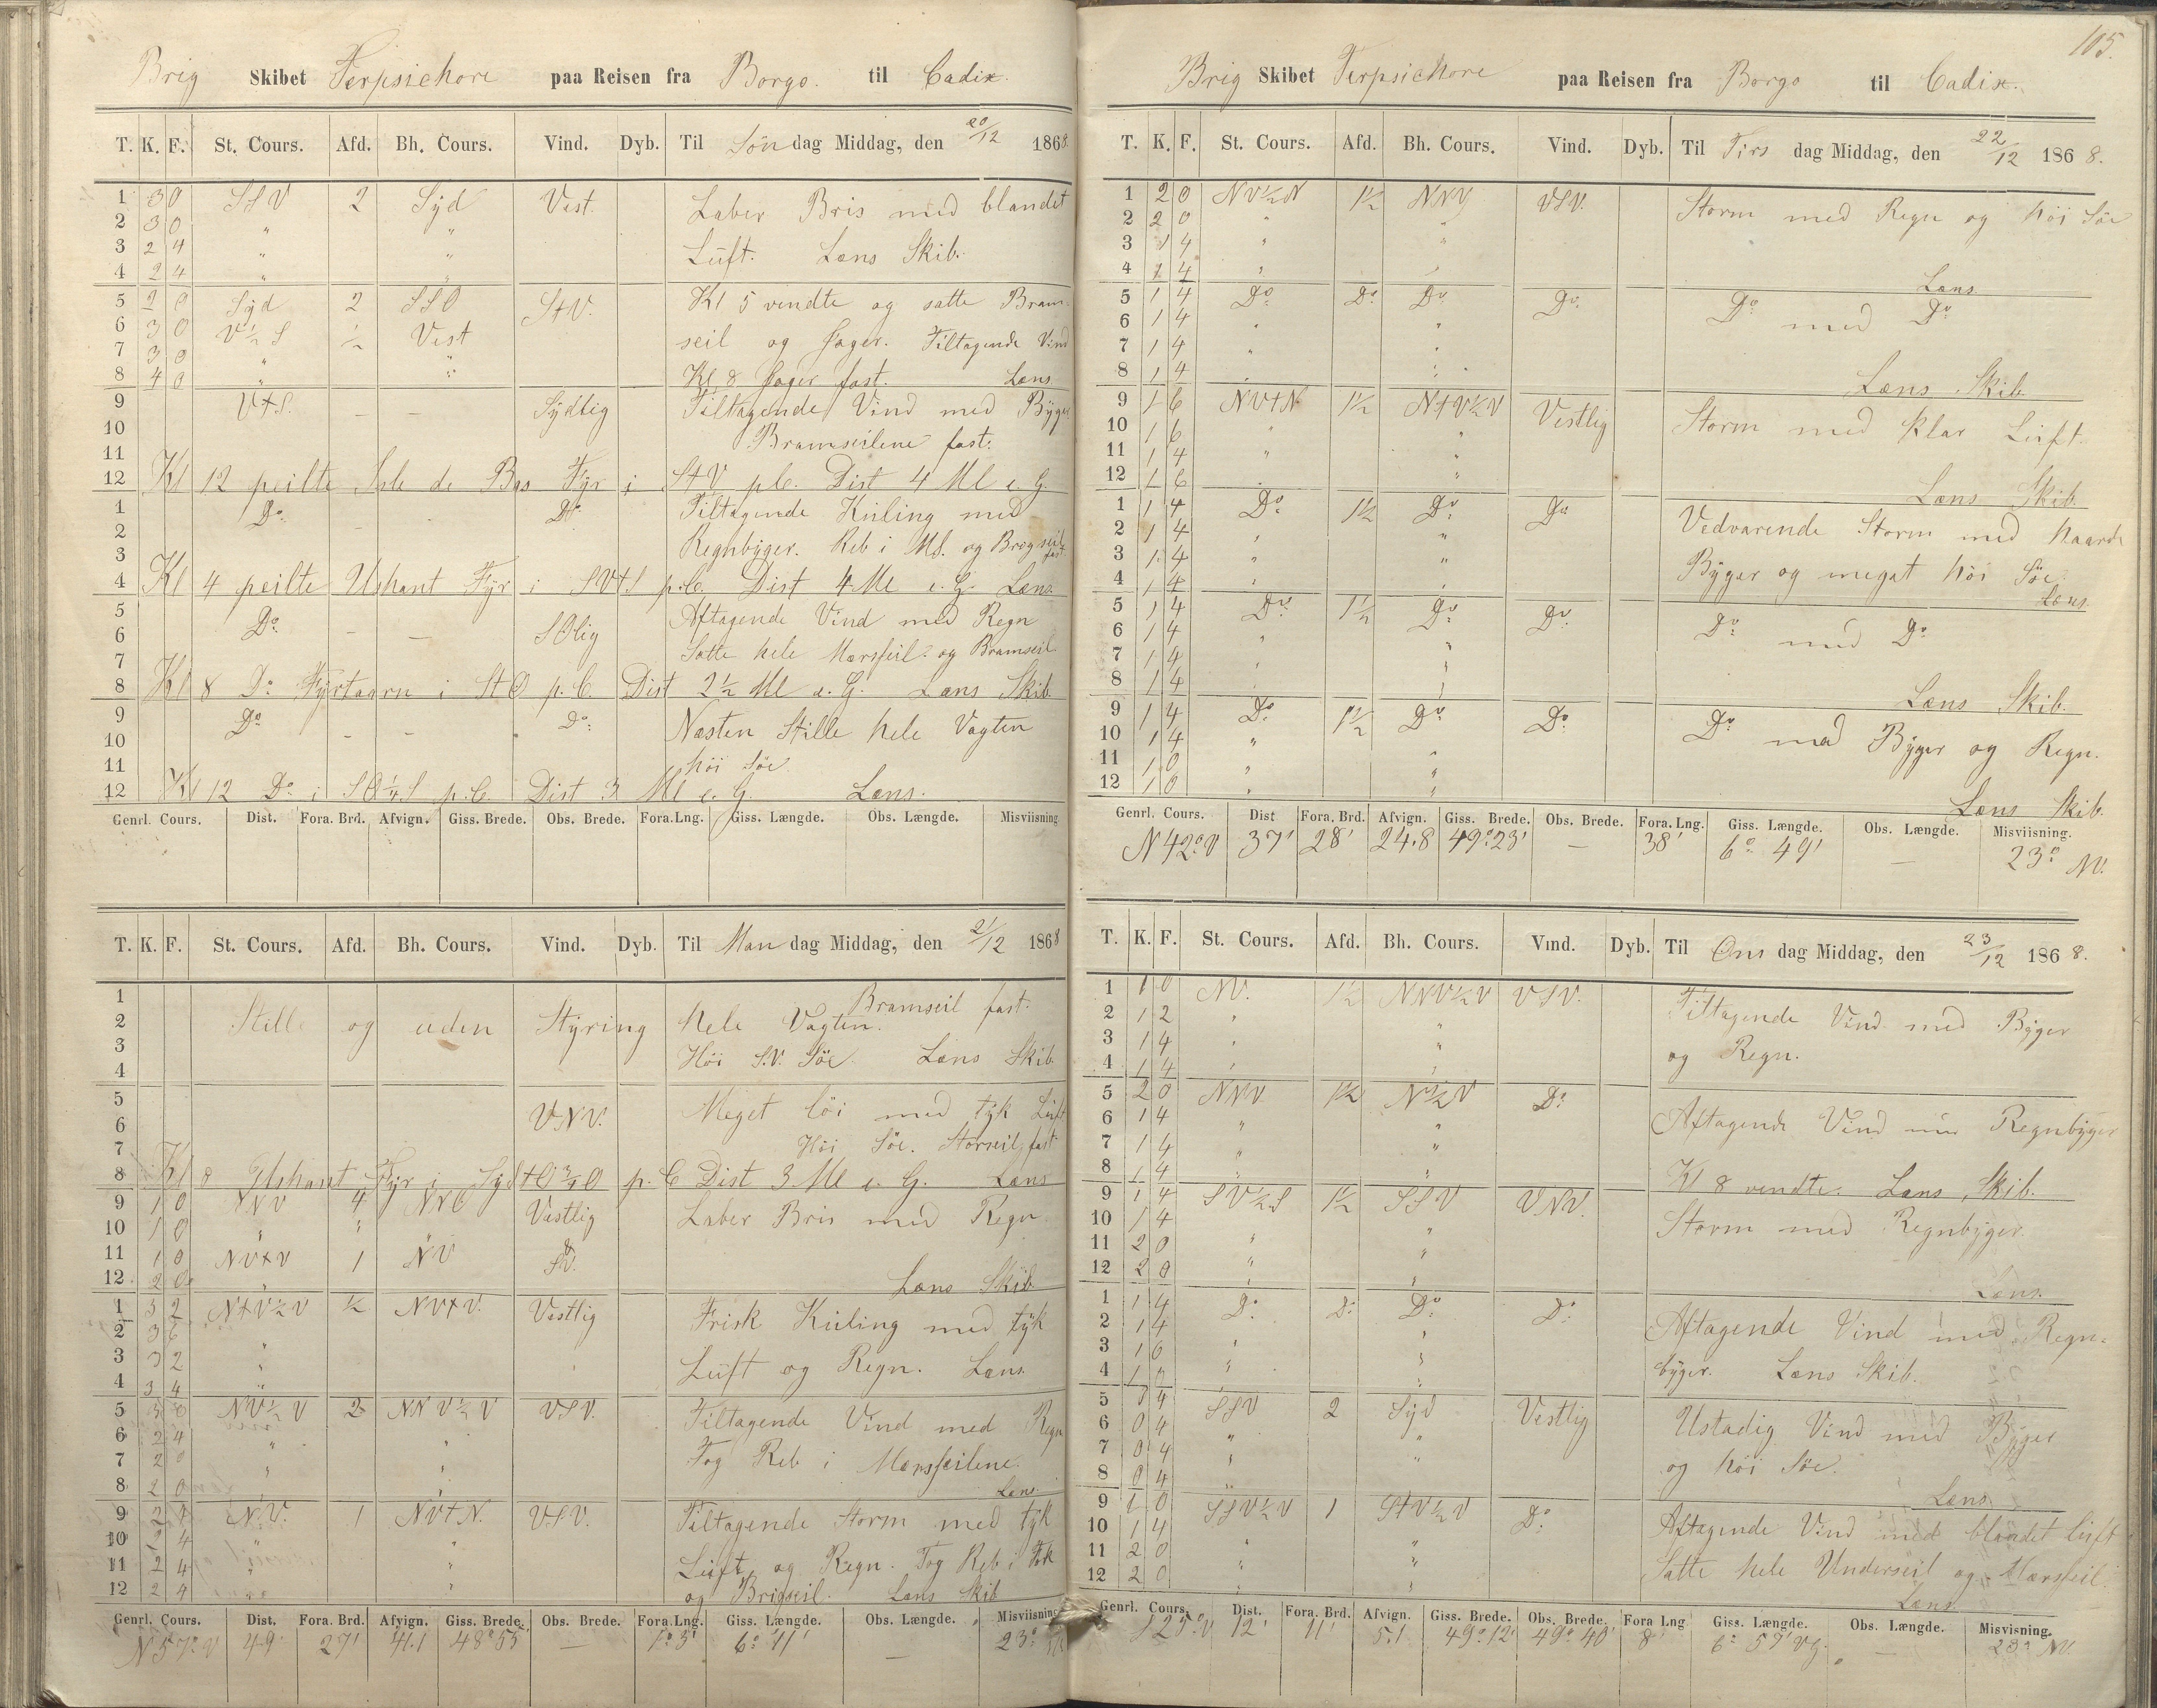 Brig Skibet Terpsichore paa Reisen fra Borgo. til Cadix.
T. K. F. St. Cours. Afd. Bh. Cours. Vind. Dyb. Til Søndag Middag, den 20/12 1868
1 3 0 SSV 2 Syd Vest. Laber Bris med blandet
2 3 0 " "
3 2 4 " " Luft. Læns Skib.
4 2 4 " "
5 2 0 Syd 2 SSO StV. Kl 5 vendte og satte Bram
6 3 0 V½S ½ Vest seil og Jager. Tiltagende Vind
7 3 0 " "
8 4 0 " " Kl. 8 Jager fast. Læns
9 VtS. – – Sydlig Tiltagende Vind med Byger
10 Bramseilene fast.
11
12 Kl 12 peilte Isle de Bas Fyr i StV p.C. Dist 4 Ml e. G.
1 Do – – Do Tiltagende Kuling med
2 Regnbyger. Reb i MS. og Brogseil fast
3
4 Kl 4 peilte Ushant Fyr i SVtS p.C. Dist 4 Ml e. G. Læns.
5 Do – – SOlig Aftagende Vind med Regn
6 Satte hele Mersseil og Bramseil
7
8 Kl 8 Do Fyrtaarn i StO p. C. Dist 2½ Ml e. G. Læns Skib.
9 Do – – Do: Næsten Stille hele Vagten
10
11 høi Søe.
12 Kl 12 Do i SO¼S p.C. Dist 3 Ml e. G. Læns.
Genrl. Cours. Dist. Fora. Brd. Afvign. Giss. Brede. Obs. Brede. Fora.Lng. Giss. Længde. Obs. Længde. Misviisning
T. K. F. St. Cours. Afd. Bh. Cours. Vind. Dyb. Til Mandag Middag, den 21/12 1868
1 Bramseil fast.
2 Stille og uden Styring hele Vagten.
3 Høi S.V. Søe. Læns Skib
4
5 VNV. Meget løi med tyk Luft
6
7 Høi Søe. Storseil fast
8 Kl 8 Ushant Fyr i SydtO¾O p. C Dist 3 Ml e. G. Læns
9 1 0 NNV 4 NNO Vestlig Laber Bris med Regn
10 1 0 " " "
11 1 0 NVtV 1 NV
12 2 0 " Læns Skib
1 3 2 NtV½V ½ NVtV. Vestlig Frisk Kuling med tyk
2 3 6 "
3 3 2 " Luft og Regn. Læns.
4 3 4 "
5 3 0 NV½V 2 NNV½V VSV. Tiltagende Vind med Regn
6 2 4 " "
7 2 0 " " Tog Reb i Mersseilene.
8 2 0 " Læns.
9 2 4 NV. 1 NVtN. VSV. Tiltagende Storm med tyk
10 2 4 " "
11 2 4 " " Luft og Regn. Tog Reb i Fok
12 2 4 " og Brigseil. Læns Skib
Genrl. Cours. Dist. Fora. Brd. Afvign. Giss. Brede. Obs. Brede. Fora.Lng. Giss. Længde. Obs. Længde. Misviisning
N 57° V 49' 27' 41.1 48° 55' — 1° 3' 6° 11' — 23°
105.
Brig Skibet Terpsichore paa Reisen fra Borgo til Cadix.
T. K. F. St. Cours. Afd. Bh. Cours. Vind. Dyb. Til Tirsdag Middag, den 22/12 1868.
1 2 0 NV½N 1½ NNV VSV. Storm med Regn og høi Søe
2 2 0 " "
3 1 4 " "
4 1 4 " " Læns
5 1 4 Do Do Do Do Do med Do
6 1 4 " "
7 1 4 " "
8 1 4 " " Læns Skib
9 1 6 NVtN 1½ NtV½V Vestlig Storm med klar Luft.
10 1 6 " "
11 1 4 " "
12 1 6 " Læns Skib.
1 1 4 Do 1½ Do Do Vedvarende Storm med haarde
2 1 4 " "
3 1 4 " " Byger og meget høi Søe.
4 1 4 " " Læns.
5 1 4 Do 1½ Do Do: Do med Do
6 1 4 " "
7 1 4 " "
8 1 4 " " Læns Skib.
9 1 4 Do 1½ Do Do: Do med Byger og Regn.
10 1 4 "
11 1 0 " "
12 1 0 " " Læns Skib.
Genrl. Cours. Dist Fora. Brd. Afvign. Giss. Brede. Obs. Brede. Fora. Lng. Giss. Længde. Obs. Længde. Misviisning.
N 42° V 37' 28' 24.8 49° 23' — 38' 6° 49' — 23° NV.
T. K. F. St. Cours. Afd. Bh. Cours. Vind. Dyb. Til Onsdag Middag, den 23/12 1868.
1 1 0 NV. 1½ NNV½V VSV. Tiltagende Vind med Byger
2 1 2 " "
3 1 4 " " og Regn.
4 1 4 " "
5 2 0 NNV 1½ N½V Do: Aftagende Vind med Regnbyger
6 1 4 " "
7 1 4 " "
8 1 4 " " Kl 8 vendte. Læns Skib.
9 1 4 SV½S 1½ SSV VNV. Storm med Regnbyger.
10 1 4 "
11 2 0 " "
12 2 0 " " Læns.
1 1 4 Do: Do: Do: Do: Aftagende Vind med Regn-
2 1 4 "
3 1 6 " " byger. Læns Skib.
4 " "
5 0 4 SSV 2 Syd Vestlig Ustadig Vind med Byger
6 0 4 " "
7 0 4 " " og høi Søe.
8 0 4 " Læns
9 1 0 SSV½V 1 StV½V Do: Aftagende Vind med blandet luft
10 1 4
11 2 0 " " Satte hele Underseil og Mersseil.
12 2 0 " " Læns
Genrl. Cours. Dist. Fora. Brd. Afvign. Giss. Brede. Obs. Brede. Fora Lng Giss. Længde. Obs. Længde. Misvisning.
S 25° V 12' 11' 5.1 49° 12' 49° 40' 8' 6° 57' Vg. — 23° NV.